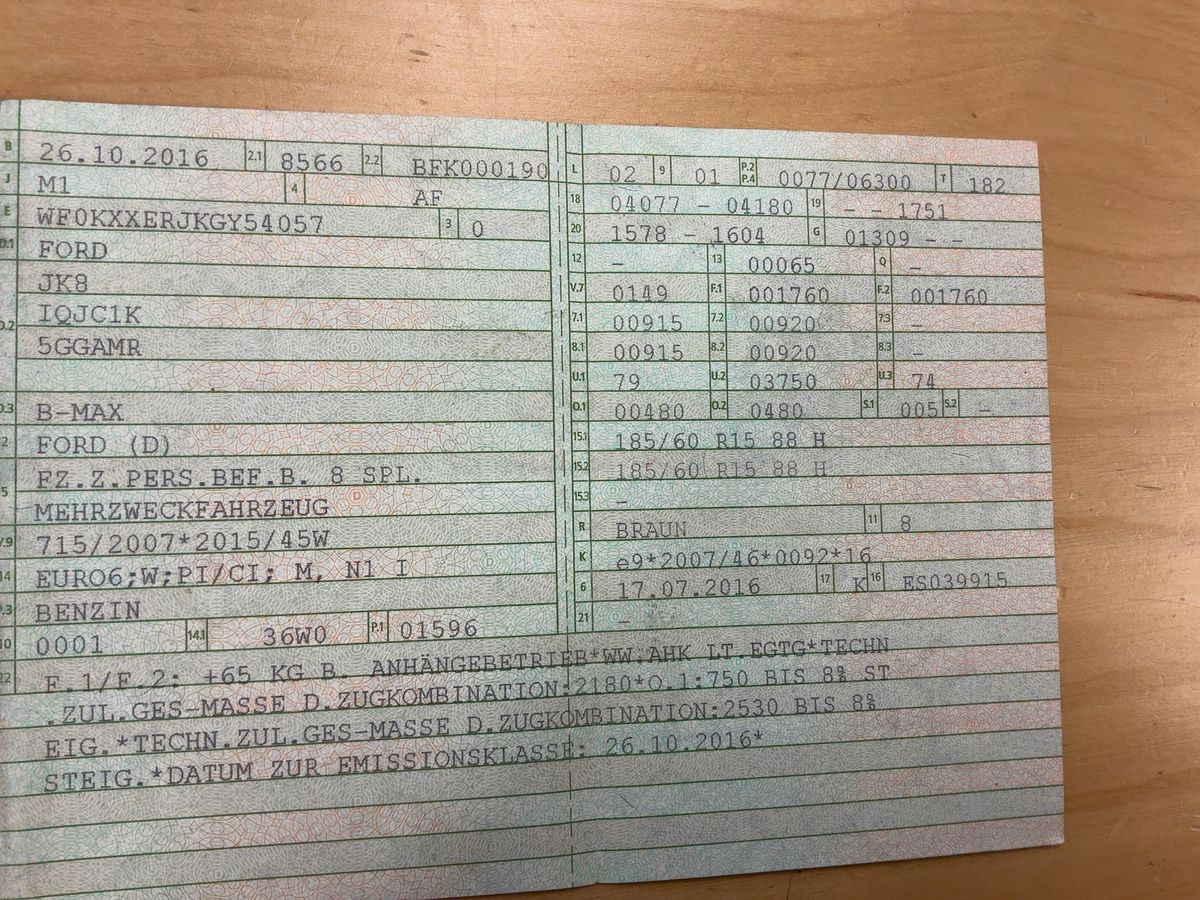 B 26.10.2016 2.1 8566 2.2 BFK000190
J M1 4 AF
E WF0KXXERJKGY54057 3 0
D.1 FORD
JK8
D.2 IQJC1K
5GGAMR
D.3 B-MAX
2 FORD (D)
FZ.Z.PERS.BEF.B. 8 SPL.
5 MEHRZWECKFAHRZEUG
V.9 715/2007*2015/45W
14 EURO6;W;PI/CI; M, N1 I
P.3 BENZIN
10 0001 14.1 36W0 P.1 01596
L 02 9 01 P.2 P.4 0077/06300 T 182
18 04077 - 04180 19 - - 1751
20 1578 - 1604 G 01309 - -
12 - 13 00065 Q -
V.7 0149 F.1 001760 F.2 001760
7.1 00915 7.2 00920 7.3 -
8.1 00915 8.2 00920 8.3 -
U.1 79 U.2 03750 U.3 74
O.1 00480 O.2 0480 S.1 005 S.2 -
15.1 185/60 R15 88 H
15.2 185/60 R15 88 H
15.3 -
R BRAUN 11 8
K e9*2007/46*0092*16
6 17.07.2016 17 K 16 ES039915
21 -
22 F.1/F.2: +65 KG B. ANHÄNGEBETRIEB*WW.AHK LT.EGTG*TECHN
.ZUL.GES-MASSE D.ZUGKOMBINATION:2180*O.1:750 BIS 8% ST
EIG.*TECHN.ZUL.GES-MASSE D.ZUGKOMBINATION:2530 BIS 8%
STEIG.*DATUM ZUR EMISSIONSKLASSE: 26.10.2016*